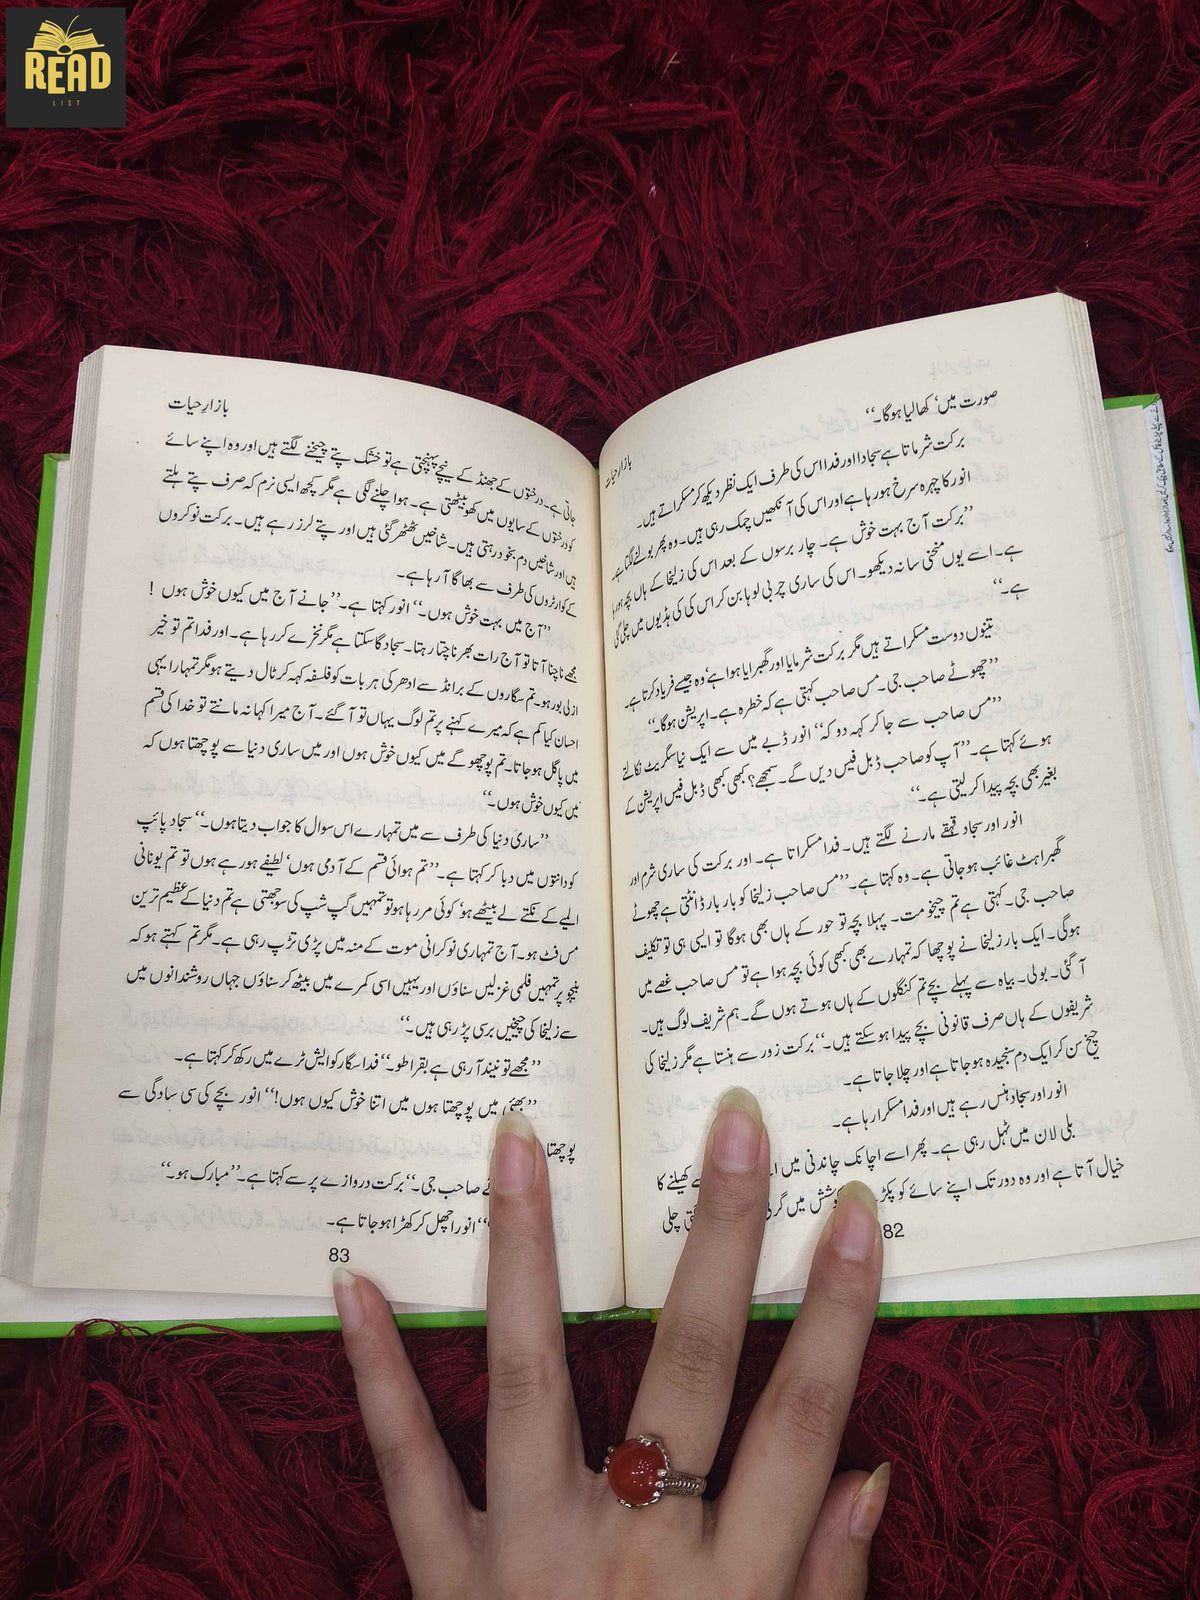 READ
LIST
بازارِ حیات
صورت میں‘ کھا لیا ہوگا۔‘‘
برکت شرماتا ہے سجاد اور فدا اس کی طرف ایک نظر دیکھ کر مسکراتے ہیں۔
انور کا چہرہ سرخ ہو رہا ہے اور اس کی آنکھیں چمک رہی ہیں۔ وہ پھر بولنے لگتا ہے۔
’’برکت آج بہت خوش ہے۔ چار برسوں کے بعد اس کی زلیخا کے ہاں بچہ ہو رہا
ہے۔ اسے یوں منحنی سا نہ دیکھو۔ اس کی ساری چربی لوہا بن کر اس کی ہڈیوں میں چلی گئی
ہے۔‘‘
تینوں دوست مسکراتے ہیں مگر برکت شرمایا اور گھبرایا ہوا ہے‘ وہ جیسے فریاد کرتا ہے۔
’’چھوٹے صاحب جی۔ مس صاحب کہتی ہے کہ خطرہ ہے۔ اپریشن ہوگا۔‘‘
’’مس صاحب سے جا کر کہہ دو کہ‘‘ انور ڈبے میں سے ایک نیا سگریٹ نکالتے
ہوئے کہتا ہے۔ ’’آپ کو صاحب ڈبل فیس دیں گے۔ سمجھے؟ کبھی کبھی ڈبل فیس اپریشن کے
بغیر بھی بچہ پیدا کر لیتی ہے۔‘‘
انور اور سجاد قہقہے مارنے لگتے ہیں۔ فدا مسکراتا ہے۔ اور برکت کی ساری شرم اور
گھبراہٹ غائب ہو جاتی ہے۔ وہ کہتا ہے۔ ’’مس صاحب زلیخا کو بار بار ڈانٹتی ہے چھوٹے
صاحب جی۔ کہتی ہے تم چیخو مت۔ پہلا بچہ تو حور کے ہاں بھی ہوگا تو ایسی ہی تو تکلیف
ہوگی۔ ایک بار زلیخا نے پوچھا کہ تمہارے بھی کبھی کوئی بچہ ہوا ہے تو مس صاحب غصے میں
آ گئی۔ بولی۔ بیاہ سے پہلے بچے تم کنگلوں کے ہاں ہوتے ہوں گے۔ ہم شریف لوگ ہیں۔
شریفوں کے ہاں صرف قانونی بچے پیدا ہو سکتے ہیں۔‘‘ برکت زور سے ہنستا ہے مگر زلیخا کی
چیخ سن کر ایک دم سنجیدہ ہو جاتا ہے اور چلا جاتا ہے۔
انور اور سجاد ہنس رہے ہیں اور فدا مسکرا رہا ہے۔
بلی لان میں ٹہل رہی ہے۔ پھر اسے اچانک چاندنی میں سے کھیلنے کا
خیال آتا ہے اور وہ دور تک اپنے سائے کو پکڑ میں چلی
82
بازارِ حیات
جاتی ہے۔ درختوں کے جھنڈ کے نیچے پہنچتی ہے تو خشک پتے چیخنے لگتے ہیں اور وہ اپنے سائے
کو درختوں کے سایوں میں کھو بیٹھتی ہے۔ ہوا چلنے لگی ہے مگر کچھ ایسی نرم کہ صرف پتے ہلتے
ہیں اور شاخیں دم بخود رہتی ہیں۔ شاخیں ٹھٹھر گئی ہیں اور پتے لرز رہے ہیں۔ برکت نوکروں
کے کوارٹروں کی طرف سے بھاگا آ رہا ہے۔
’’آج میں بہت خوش ہوں۔‘‘ انور کہتا ہے۔ ’’جانے آج میں کیوں خوش ہوں !
مجھے ناچنا آتا تو آج رات بھر ناچتا رہتا۔ سجاد گا سکتا ہے مگر نخرے کر رہا ہے۔ اور فدا تم تو خیر
ازلی بور ہو۔ تم سگاروں کے برانڈ سے ادھر کی ہر بات کو فلسفہ کہہ کر ٹال دیتے ہو مگر تمہارا یہی
احسان کیا کم ہے کہ میرے کہنے پر تم لوگ یہاں تو آ گئے۔ آج میرا کہا نہ مانتے تو خدا کی قسم
میں پاگل ہو جاتا۔ تم پوچھو گے میں کیوں خوش ہوں اور میں ساری دنیا سے پوچھتا ہوں کہ
میں کیوں خوش ہوں۔‘‘
’’ساری دنیا کی طرف سے میں تمہارے اس سوال کا جواب دیتا ہوں۔‘‘ سجاد پائپ
کو دانتوں میں دبا کر کہتا ہے۔ ’’تم ہوائی قسم کے آدمی ہوں‘ لطیفے ہو رہے ہوں تو تم یونانی
المیے کے نکتے لے بیٹھے ہو‘ کوئی مر رہا ہو تو تمہیں گپ شپ کی سوجھتی ہے تم دنیا کے عظیم ترین
مس فٹ ہو۔ آج تمہاری نوکرانی موت کے منہ میں پڑی تڑپ رہی ہے۔ مگر تم کہتے ہو کہ
پر تمہیں فلمی غزلیں سناؤں اور یہیں اسی کمرے میں بیٹھ کر سناؤں جہاں روشندانوں میں
سے زلیخا کی چیخیں برسی پڑ رہی ہیں۔‘‘
’’مجھے تو نیند آ رہی ہے بقراطو۔‘‘ فدا سگار کو ایش ٹرے میں رکھ کر کہتا ہے۔
’’بھئی میں پوچھتا ہوں میں اتنا خوش کیوں ہوں!‘‘ انور بچے کی سی سادگی سے
پوچھتا
صاحب جی۔‘‘ برکت دروازے پر سے کہتا ہے۔ ’’مبارک ہو۔‘‘
انور اچھل کر کھڑا ہو جاتا ہے۔
83